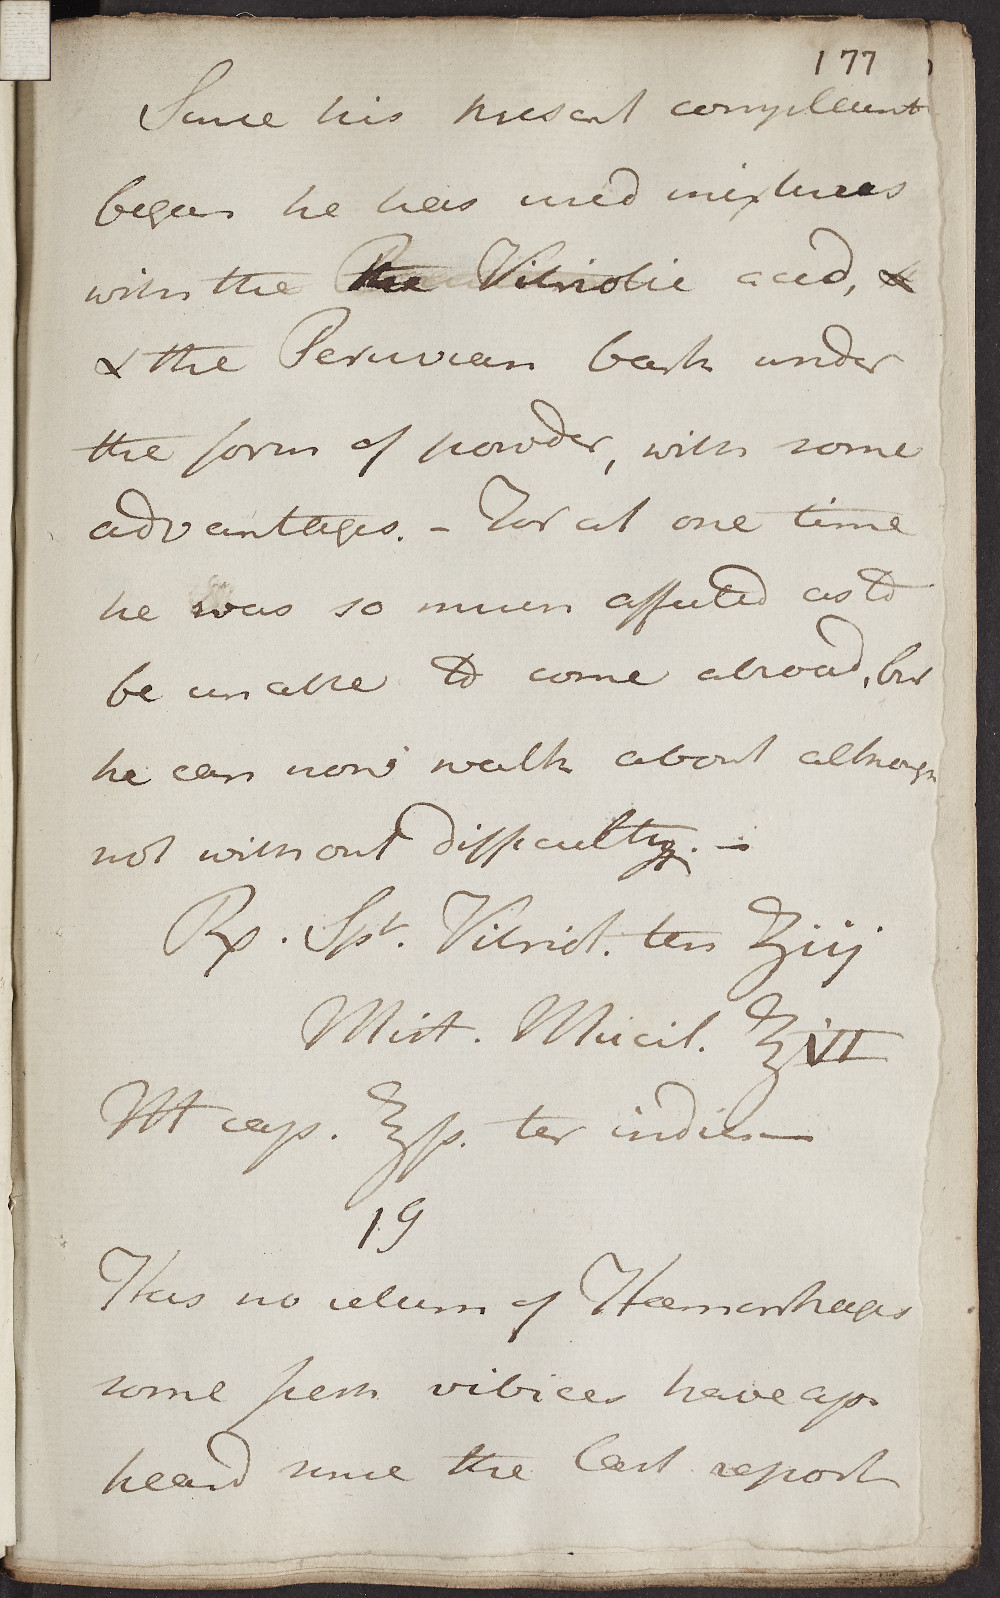 177
Since his present complaint
began he has used mixtures
with the the Vitriolic acid, &
& the Peruvian bark under
the form of powder, with some
advantages. - For at one time
he was so much affected as to
be unable to come abroad, but
he can now walk about although
not without difficulty. -
Rx. Spt. Vitriol. ten ʒiij
Mist. Mucil. ℥vi
M cap. ℥ſs. ter indies
19
Has no return of Haemorrhages
some fresh vibices have ap
peard since the last report